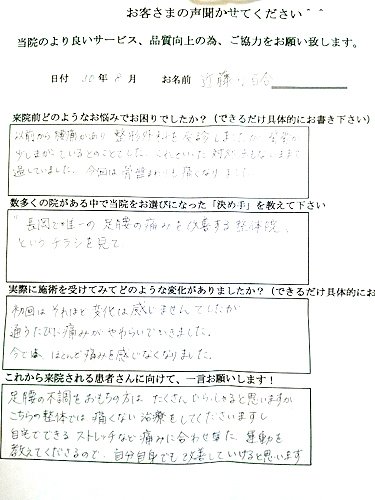 お客さまの声聞かせてください^^
当院のより良いサービス、品質向上の為、ご協力をお願い致します。
日付 30年8月 お名前 近藤
来院前どのようなお悩みでお困りでしたか?(できるだけ具体的にお書き下さい)
以前から腰痛があり 整形外科を受診しましたが、
少しまがっているとのことでした。これといった対
過していました。今回は 骨盤まわりも痛くなりました。
数多くの院がある中で当院をお選びになった「決め手」を教えて下さい
"長岡で唯一の 足腰の痛みを改善する整体院"
というチラシを見て
実際に施術を受けてみてどのような変化がありましたか?(できるだけ具体的にお
初回は それほど 変化は 感じませんでしたが
通うたびに痛みが やわらいでいきました。
今では、ほとんど痛みを感じなくなりました。
これから来院される患者さんに向けて、一言お願いします!
足腰の不調をおもちの方は たくさんいらっしゃると思いますが
こちらの整体では 痛くない 治療をしてくださいますし
自宅でできる ストレッチなど痛みに合わせた 運動を
教えてくださるので、自分自身でも改善していけると思います